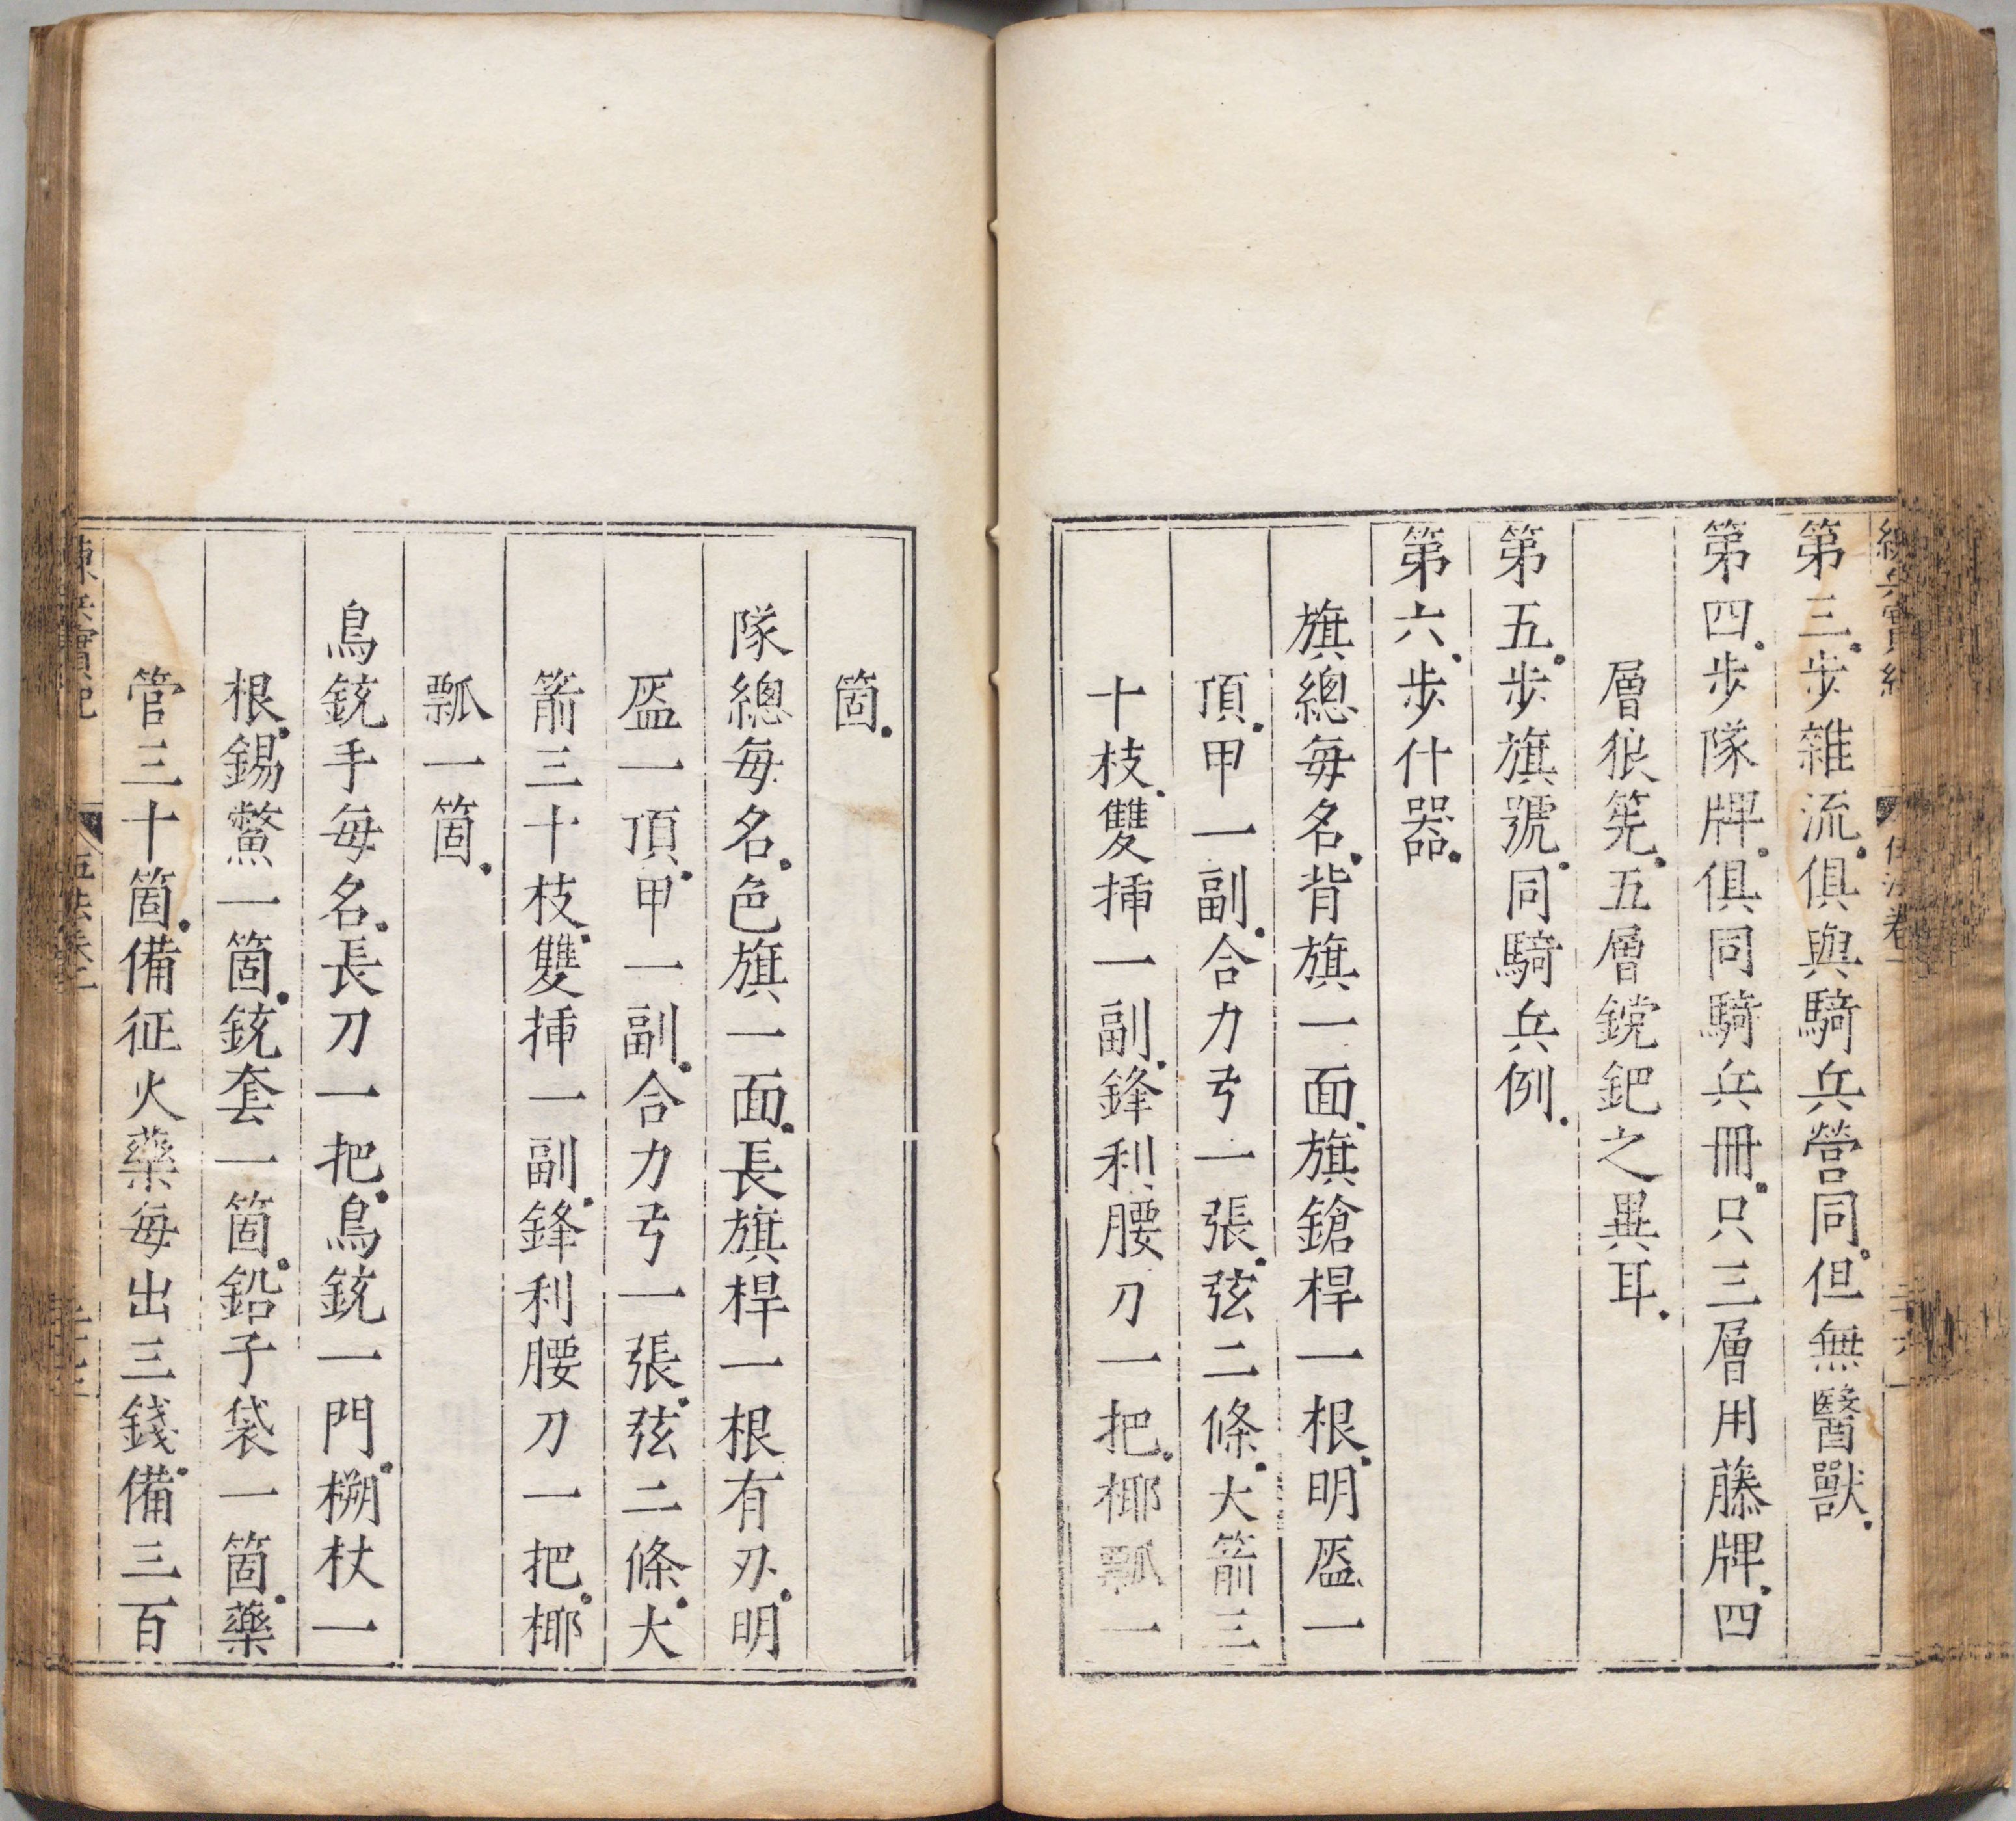 練兵實紀
伍法卷一
第三步雜流俱與騎兵營同但無醫獸
第四步隊牌俱同騎兵冊只三層用藤牌四
層狼筅五層鎲鈀之異耳
第五步旗號同騎兵例
第六步什器
旗總每名背旗一面旗鎗桿一根明盔一
頂甲一副合力弓一張弦二條大箭三
十枝雙插一副鋒利腰刀一把椰瓢一
箇
隊總每名色旗一面長旗桿一根有刃明
盔一頂甲一副合力弓一張弦二條大
箭三十枝雙插一副鋒利腰刀一把椰
瓢一箇
鳥銃手每名長刀一把鳥銃一門搠杖一
根錫鱉一箇銃套一箇鉛子袋一箇藥
管三十箇備征火藥每出三錢備三百